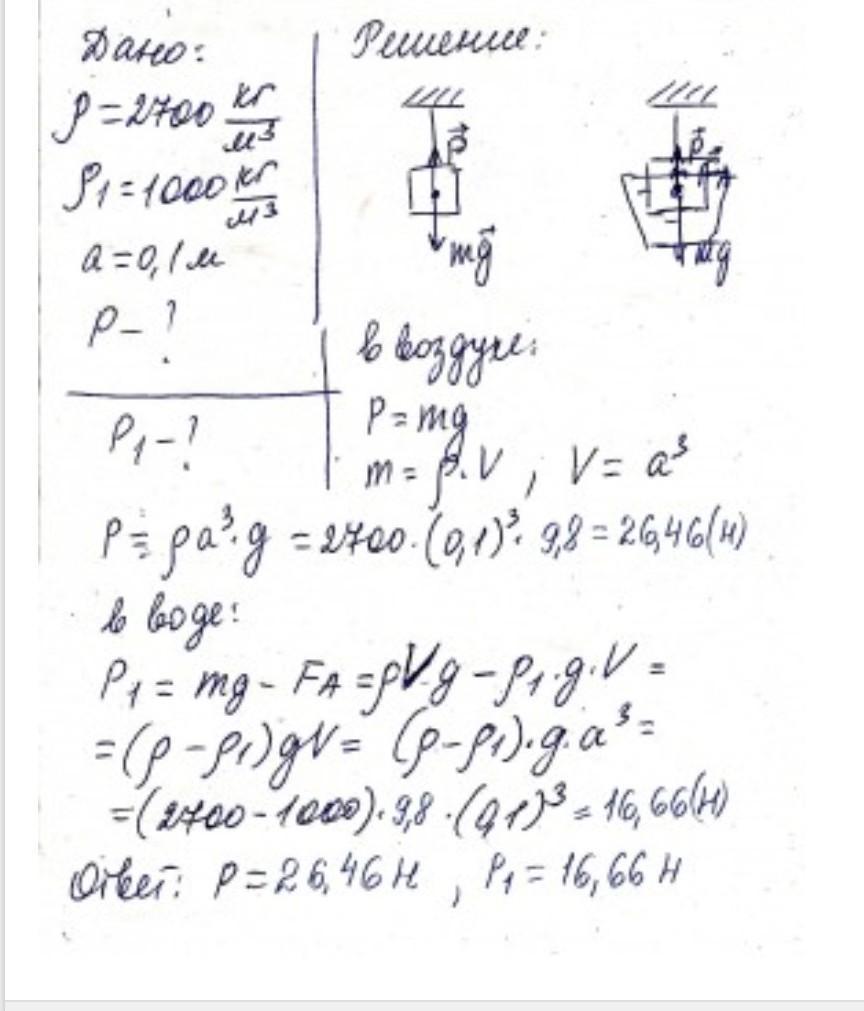 Дано:
Решение:
ρ = 2700 кг/м³
ρ1 = 1000 кг/м³
a = 0,1 м
P – ?
P1 – ?
P⃗
mg⃗
P⃗
mg
в воздухе:
P = mg
m = ρ·V , V = a³
P = ρa³·g = 2700·(0,1)³·9,8 = 26,46(н)
в воде:
P1 = mg – FA = ρVg – ρ1·g·V =
= (ρ – ρ1)gV = (ρ – ρ1)·g·a³ =
= (2700 – 1000)·9,8·(0,1)³ = 16,66(н)
Ответ: P = 26,46 н , P1 = 16,66 н